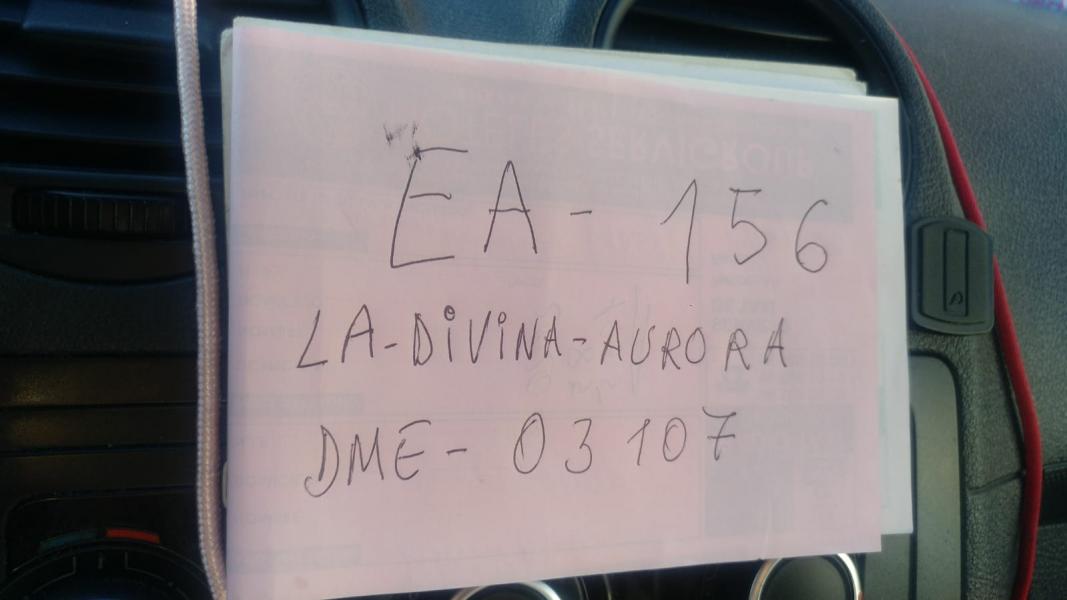 EA- 156
LA-DiViNA-AURORA
DME- 03107